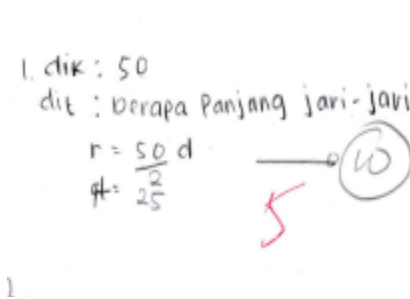 1. dik : 50
dit : berapa Panjang jari-jari
r = 50 d
2
= 25
10
5